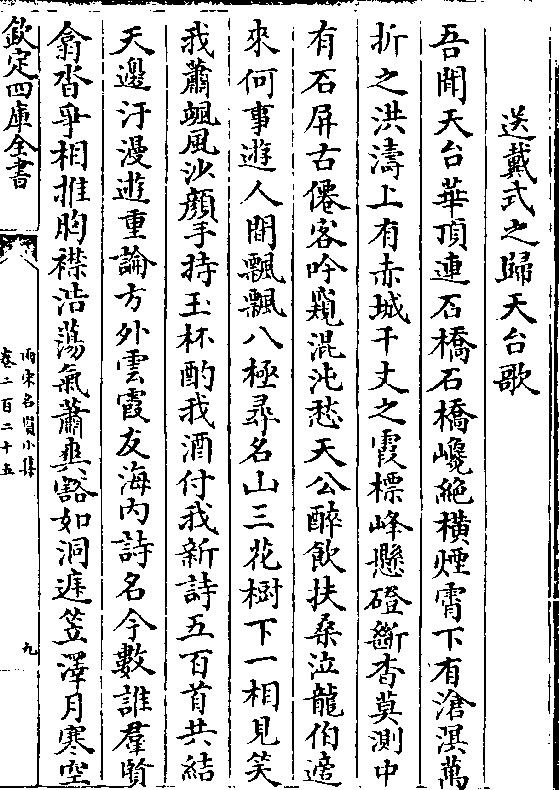 送戴式之歸天台歌
吾聞天台華頂連石橋石橋巉絶横煙霄下有滄溟萬
折之洪濤上有赤城千丈之霞標峰懸磴斷杳莫測中
有石屏古僊客吟窺混沌愁天公醉飲扶桑泣龍伯適
來何事遊人間飄飄八極尋名山三花樹下一相見笑
我蕭颯風沙顔手持玉杯酌我酒付我新詩五百首共結
天邊汗漫遊重論方外雲霞友海内詩名今數誰羣賢
翕沓爭相推胸襟浩蕩氣蕭爽豁如洞庭笠澤月寒空
欽定四庫全書
兩宋名賢小集
卷二百二十五
九